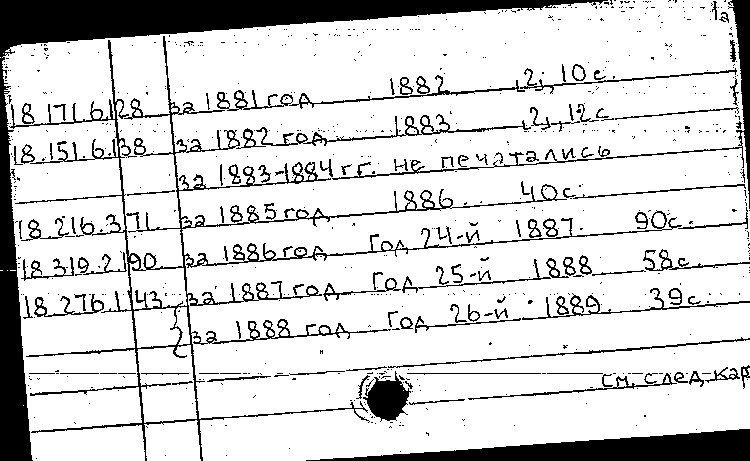 1а
18.171.6.128 за 1881 год 1882 ,2,, 10 с.
18.151.6.138 за 1882 год 1883 ,2,, 12 с
за 1883-1884 гг. не печатались
18.216.3.71. за 1885 год 1886.. 40с.
18.319.2.190 за 1886 год Год 24-й 1887. 90с.
18.276.1.143 за 1887 год Год 25-й 1888 58с.
за 1888 год Год 26-й 1889. 39с.
см. след. кар